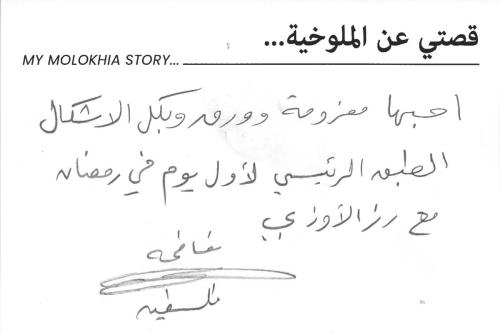 قصتي عن الملوخية...
MY MOLOKHIA STORY...
احبها مفرومة وورق وبكل الاشكال
الطبق الرئيسي لأول يوم في رمضان
مع رز الأوزي
فلسطين